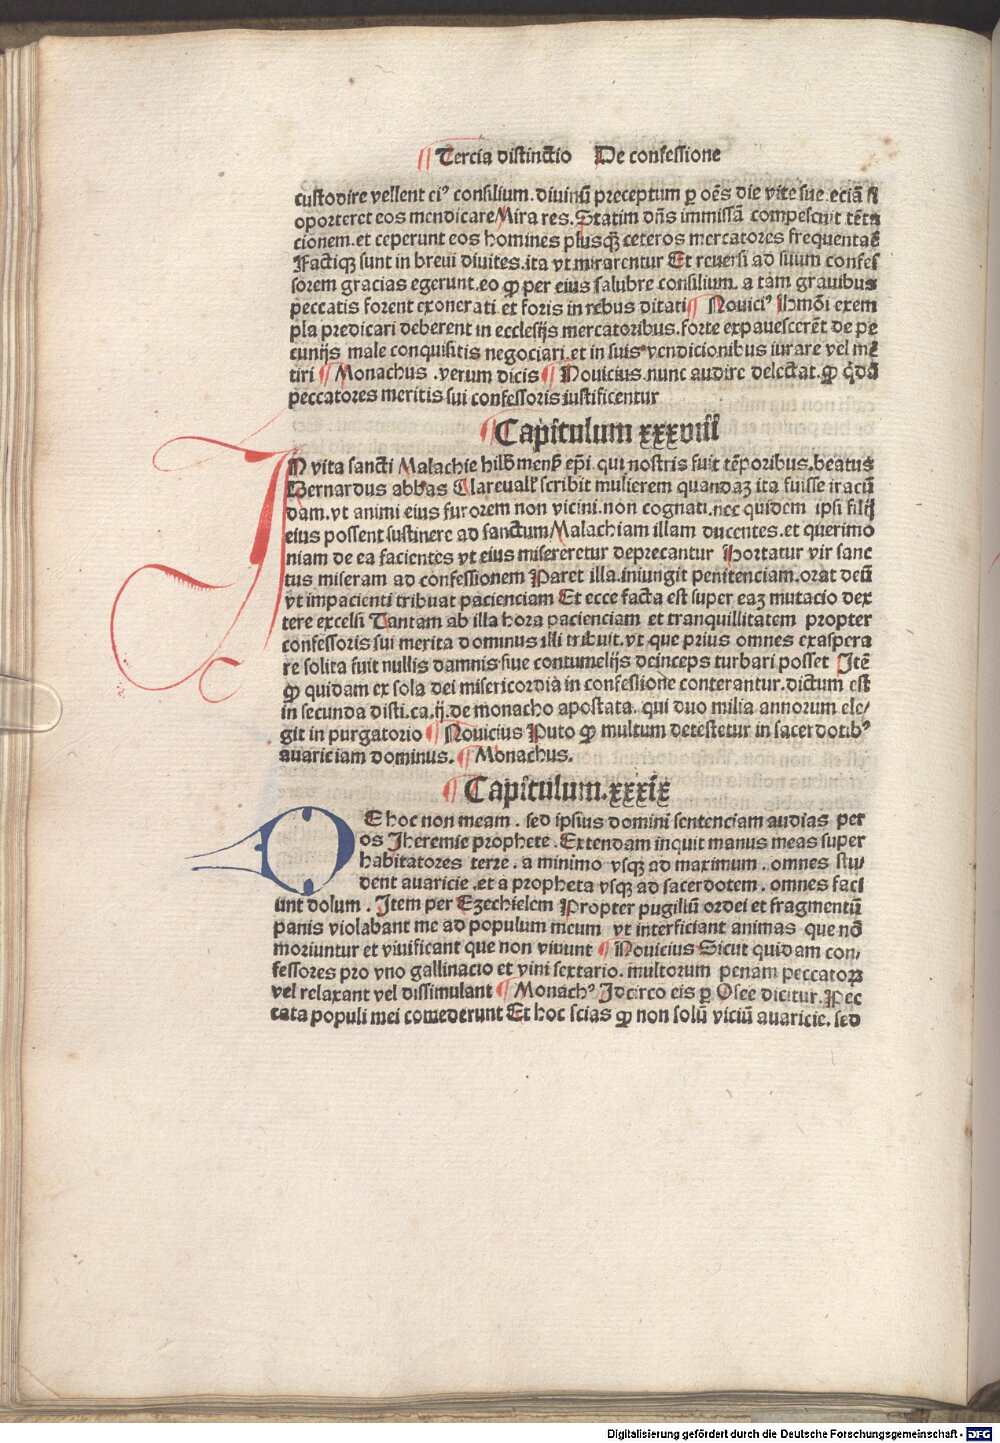 Tercia distinctio De confessione
custodire vellent ei⁹ consilium. diuinū preceptum p oēs die vite sue. eciā si
oporteret eos mendicare Mira res. Statim dn̄s immissā compescuit tēta
cionem. et ceperunt eos homines plusq̄ ceteros mercatores frequentaē
Factiq; sunt in breui diuites. ita vt mirarentur Et reuersi ad suum confes
sorem gracias egerunt. eo ꝙ per eius salubre consilium. a tam grauibus
peccatis forent exonerati et foris in rebus ditati ¶ Nouici⁹ Hmōi exem
pla predicari deberent in ecclesijs mercatoribus. forte expauescerēt de pe
cunijs male conquisitis negociari. et in suis vendicionibus iurare vel mē
tiri ¶ Monachus . verum dicis ¶ Nouicius. nunc audire delectat. ꝙ q̄dā
peccatores meritis sui confessoris iustificentur
¶ Capitulum xxxviii
IN vita sancti Malachie hilb̄mens̄ ep̄i. qui nostris fuit tēporibus. beatus
Bernardus abbas Clareuall̄ scribit mulierem quandaꝫ ita fuisse iracū
dam. vt animi eius furorem non vicini. non cognati. nec quidem ipsi filij
eius possent sustinere ad sanctum Malachiam illam ducentes. et querimo
niam de ea facientes vt eius misereretur deprecantur Hortatur vir sanc
tus miseram ad confessionem Paret illa. iniungit penitenciam. orat deū
vt impacienti tribuat pacienciam Et ecce facta est super eaꝫ mutacio dex
tere excelsi Tantam ab illa hora pacienciam et tranquillitatem propter
confessoris sui merita dominus illi tribuit. vt que prius omnes exaspera
re solita fuit nullis damnis siue contumelijs deinceps turbari posset Itē
ꝙ quidam ex sola dei misericordia in confessione conterantur. dictum est
in secunda disti. ca. ij. de monacho apostata. qui duo milia annorum ele/
git in purgatorio ¶ Nouicius Puto ꝙ multum detestetur in sacerdotib⁹
auariciam dominus. ¶ Monachus.
¶ Capitulum. xxxix
DE hoc non meam . sed ipsius domini sentenciam audias per
os Jheremie prophete . Extendam inquit manus meas super
habitatores terre. a minimo vsq; ad maximum . omnes stu/
dent auaricie . et a propheta vsq; ad sacerdotem. omnes faci
unt dolum . Item per Ezechielem Propter pugillū ordei et fragmentū
panis violabant me ad populum meum vt interficiant animas que nō
moriuntur et viuificant que non viuunt ¶ Nouicius Sicut quidam con/
fessores pro vno gallinacio et vini sextario. multorum penam peccatoꝝ
vel relaxant vel dissimulant ¶ Monach⁹ Idcirco eis p Osee dicitur. Pec
cata populi mei comederunt Et hoc scias ꝙ non solū viciū auaricie. sed
Digitalisierung gefördert durch die Deutsche Forschungsgemeinschaft - DFG